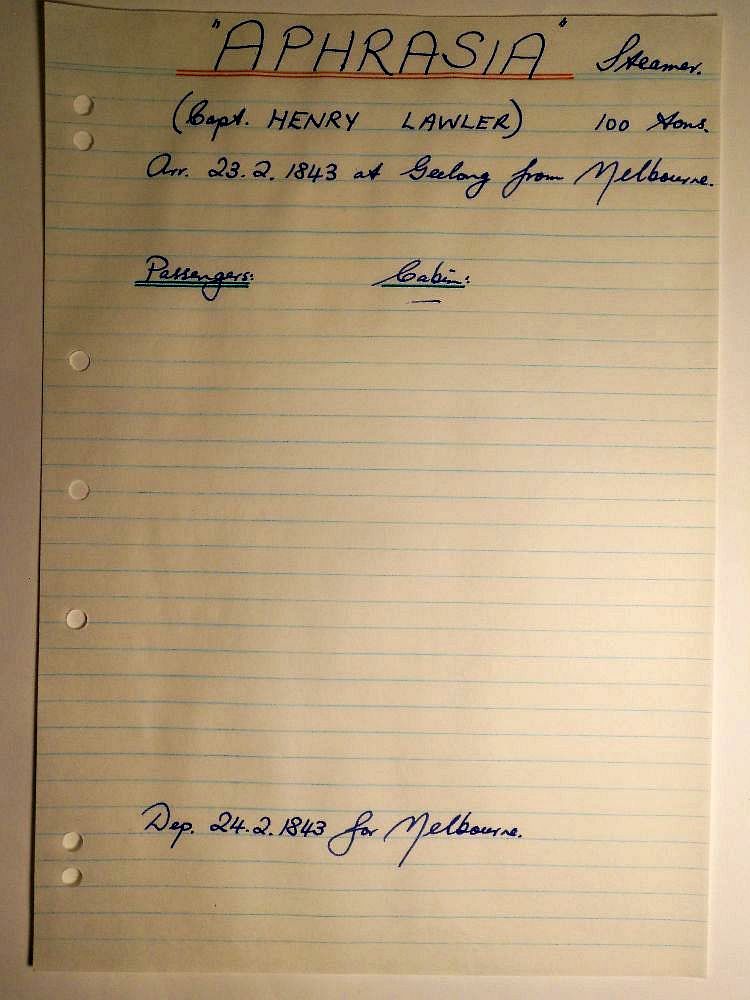 "APHRASIA" Steamer.
(Capt. HENRY LAWLER) 100 Tons.
Arr. 23.2.1843 at Geelong from Melbourne.
Passengers: Cabin:
Dep. 24.2.1843 for Melbourne.